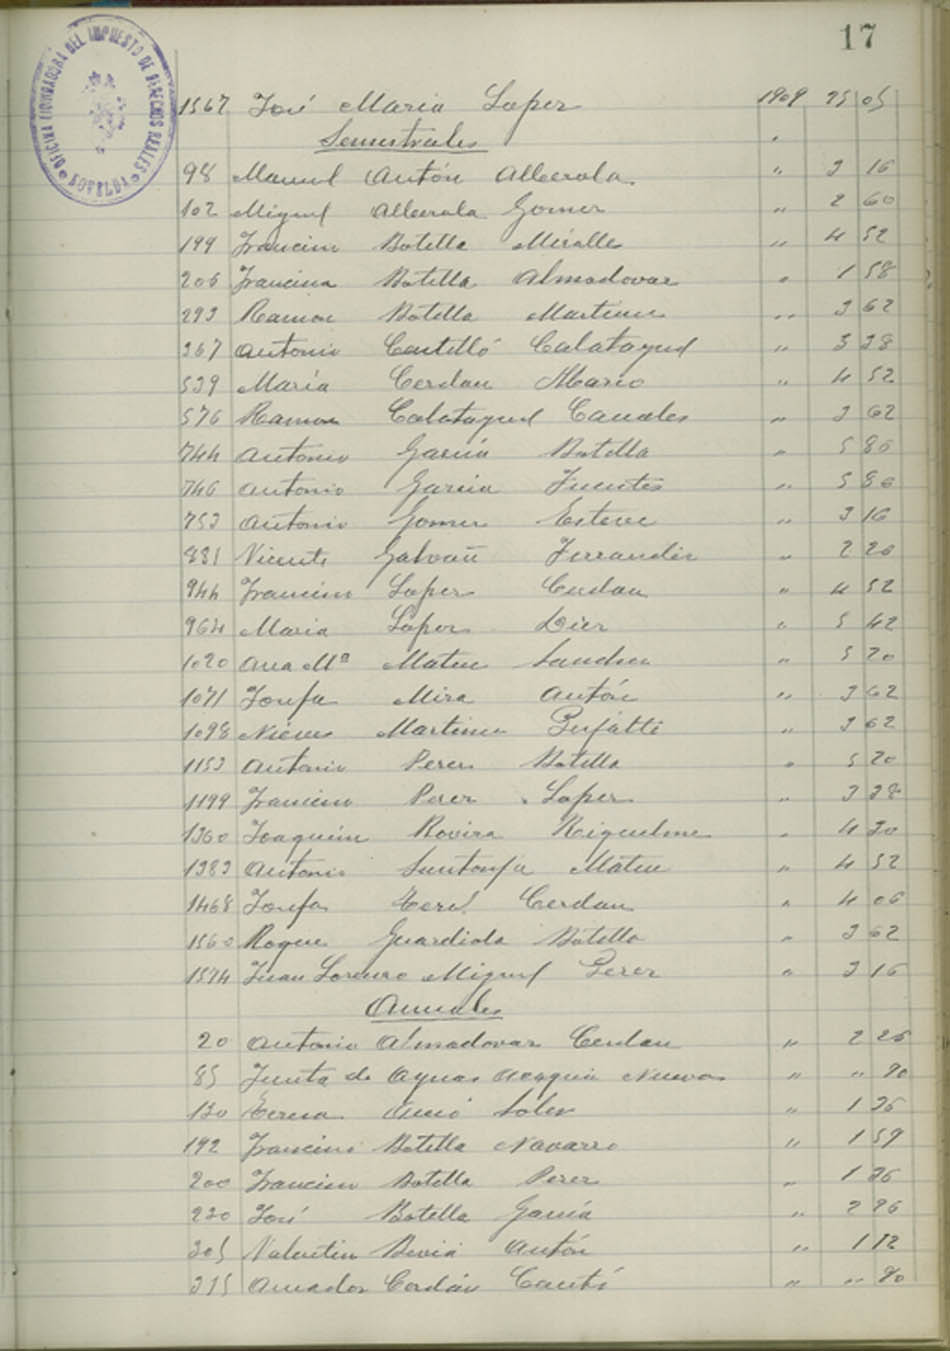 17
OFICINA LIQUIDADORA DEL IMPUESTO DE DERECHOS REALES
1567 José Maria Lopez 1909 25 05
Semestrales "
98 Manuel Antón Alberola " 3 16
102 Miguel Alberola Gomez " 2 60
199 Francisco Botella Miralles " 4 52
206 Francisca Botella Almodovar " 1 58
293 Ramon Botella Martinez " 3 62
367 Antonio Castelló Calatayud " 3 38
539 María Cerdan Mario " 4 52
576 Ramon Calatayud Canales " 3 62
744 Antonio García Botella " 5 86
746 Antonio Garcia Fuentes " 5 86
753 Antonio Gomez Esteve " 3 16
881 Vicente Galvañ Ferrandiz " 2 26
944 Francisco Lopez Cerdan " 4 52
964 Maria Lopez Diez " 5 42
1020 Ana Mª Mateu Sanchez " 5 20
1071 Josefa Mira Antón " 3 62
1098 Nieves Martinez " 3 62
1153 Antonio Perez Botella " 5 20
1199 Francisco Perez Lopez " 3 38
1360 Joaquin Rovira Riquelme " 4 30
1383 Antonio Mateu " 4 52
1468 Josefa Cerdan " 4 06
1560 Roque Guardiola Botella " 3 62
1574 Juan Lorenzo Miguel Perez " 3 16
Anuales
20 Antonio Almodovar Cerdan " 2 26
85 Junta de Aguas Acequia Nueva " " 90
130 Teresa Soler " 1 36
192 Francisco Botella Navarro " 1 59
200 Francisco Botella Perez " 1 36
230 José Botella García " 2 26
305 Valentin Bevia Antón " 1 12
315 Amador Cerdán Cantó " " 90